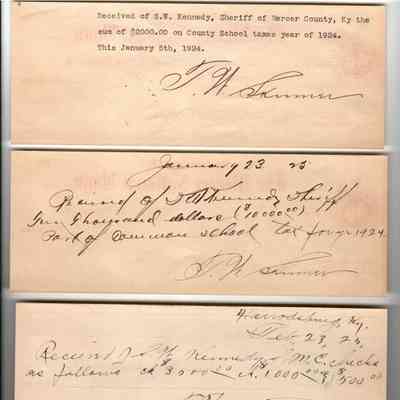 Received of S.W. Kennedy, Sheriff of Mercer County, Ky the
sum of $2000.00 on County School taxes year of 1924.
This January 5th, 1924.
T. W. Skinner
January 23 25
Received of S W Kennedy Sheriff
Ten thousand dollars ($10000 00)
Part of Common School tax for yr 1924
T. W. Skinner
Harrodsburg, Ky,
Feb. 23, 25,
Received of S. W. Kennedy M.C. checks
as follows ck 3500 00 ck 1000 00 500 00